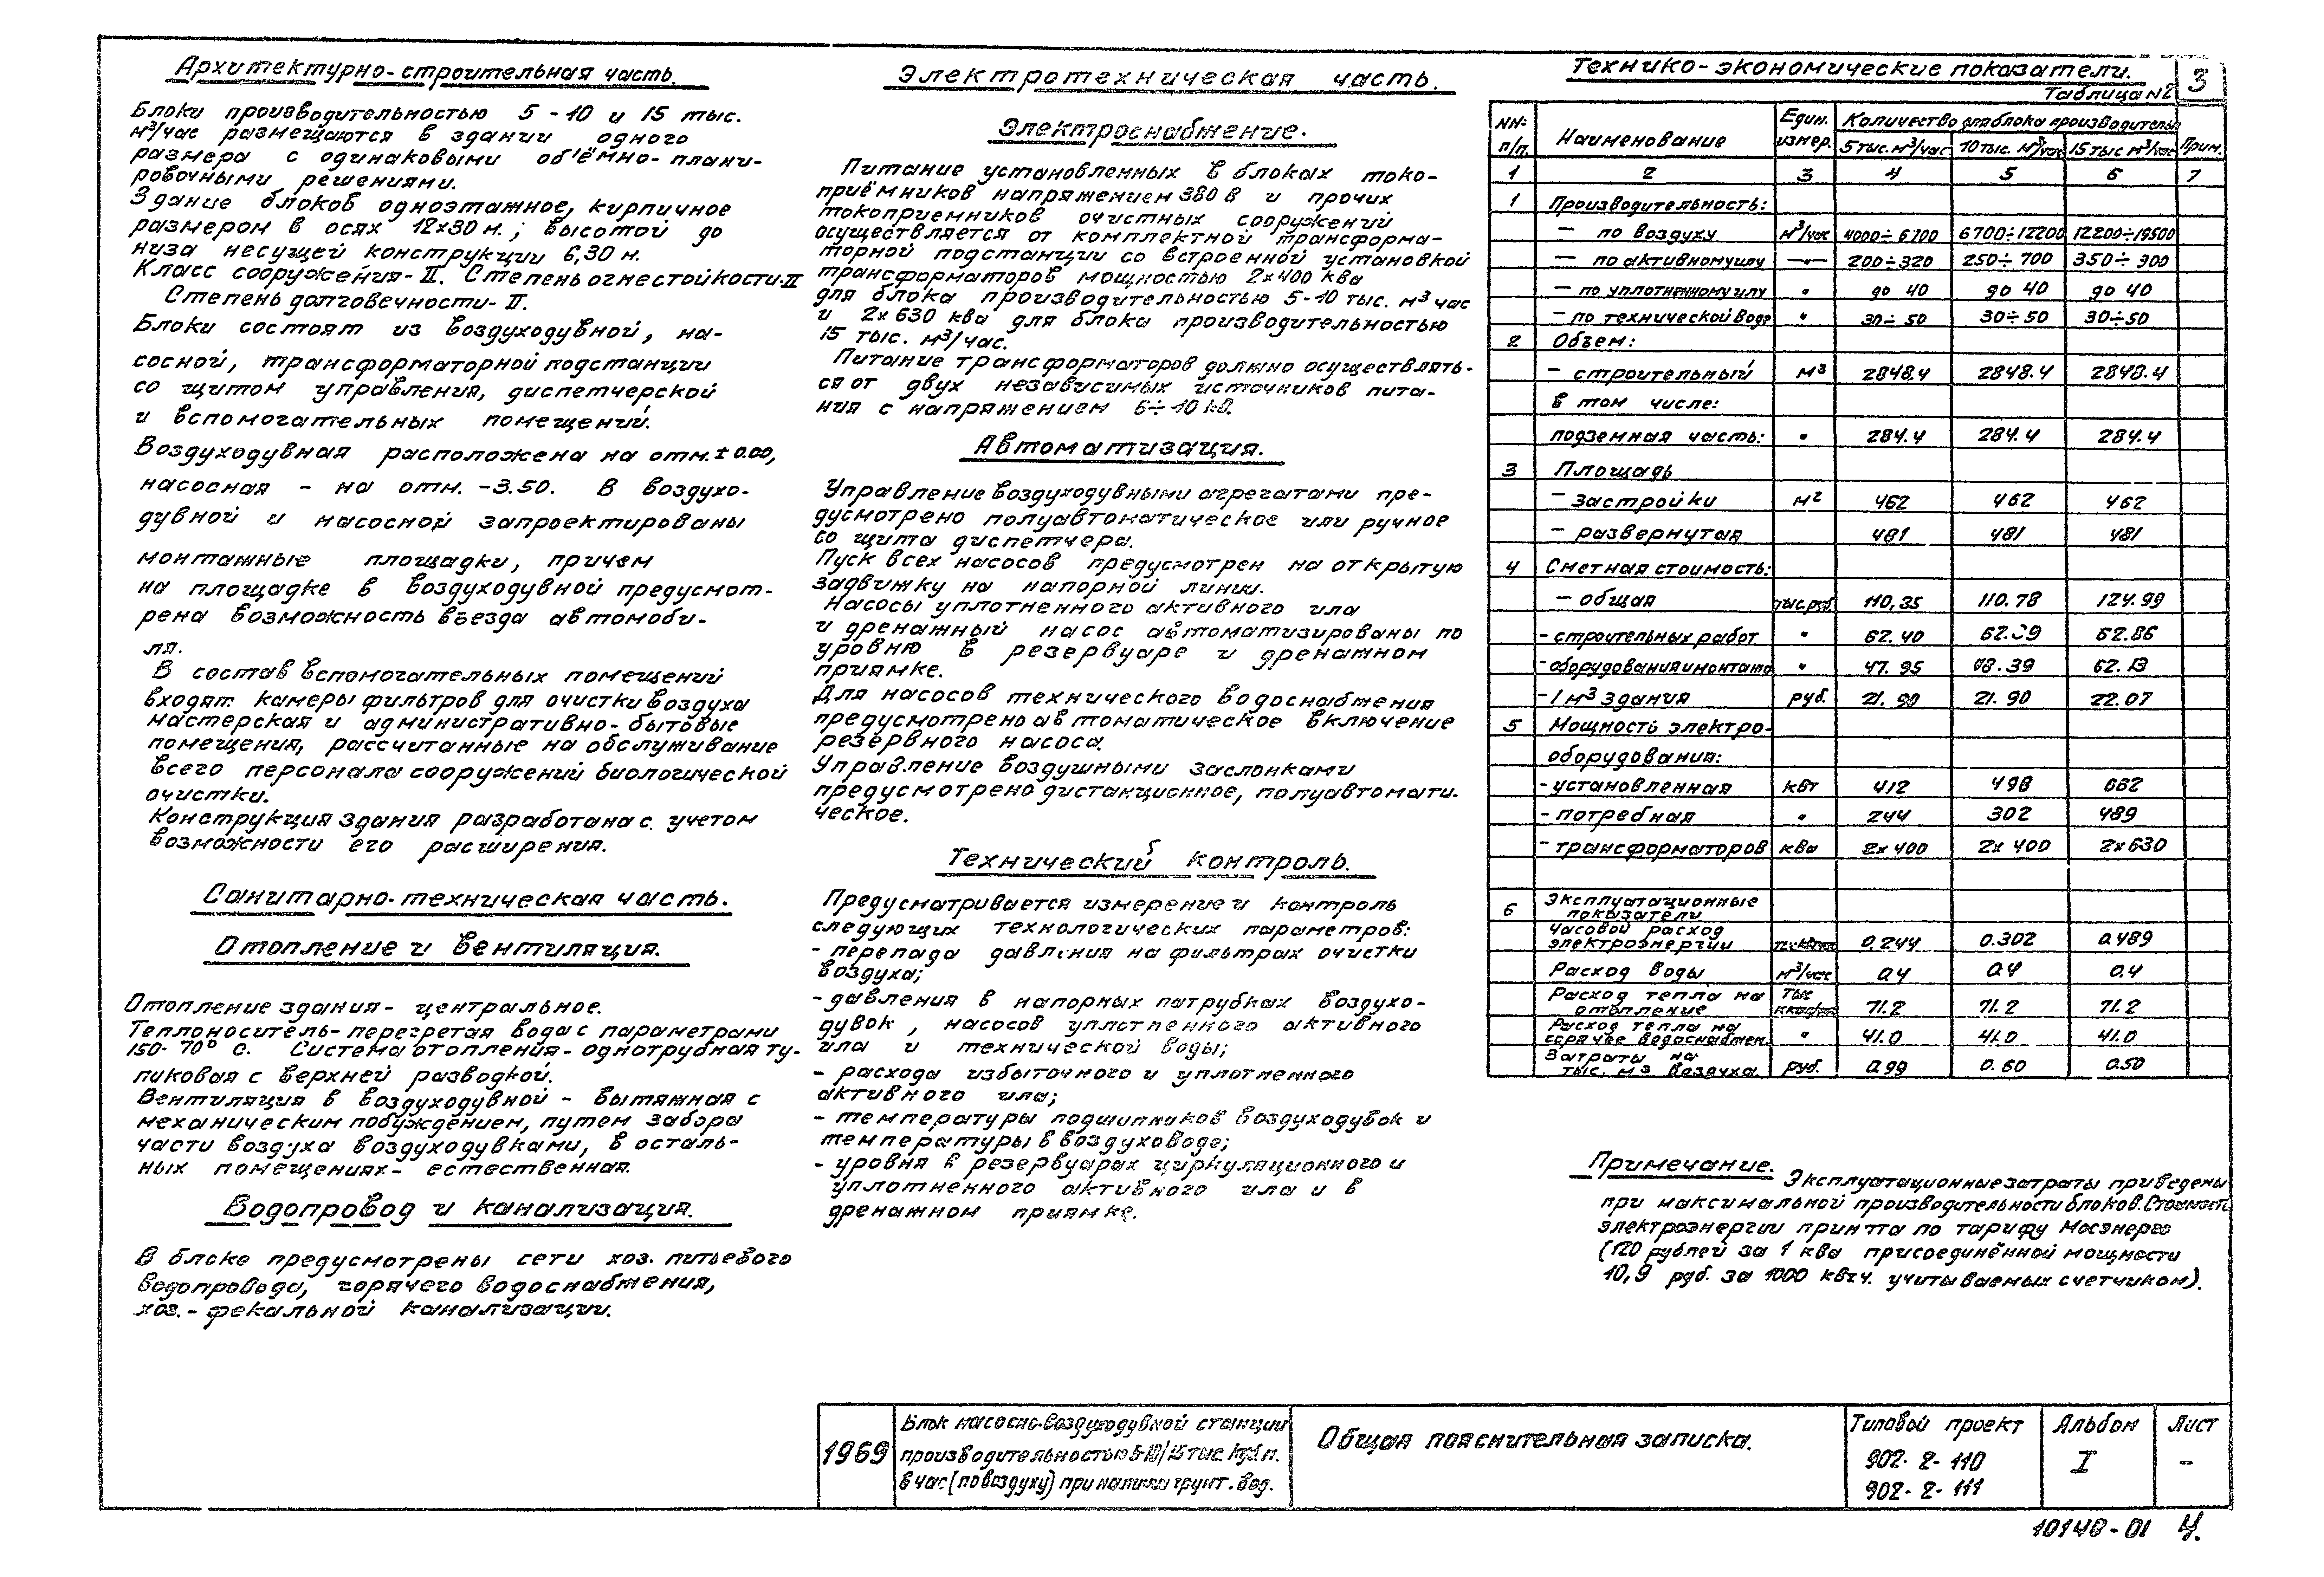 Архитектурно-строительная часть.
Блоки производительностью 5-10 и 15 тыс.
м³/час размещаются в здании одного
размера с одинаковыми объёмно-плани-
ровочными решениями.
Здание блоков одноэтажное, кирпичное
размером в осях 12х30 м.; высотой до
низа несущей конструкции 6,30 м.
Класс сооружения-II. Степень огнестойкости-II
Степень долговечности-II.
Блоки состоят из воздуходувной, на-
сосной, трансформаторной подстанции
со щитом управления, диспетчерской
и вспомогательных помещений.
Воздуходувная расположена на отм. ± 0.00,
насосная - на отм. -3.50. В воздухо-
дувной и насосной запроектированы
монтажные площадки, причем
на площадке в воздуходувной предусмот-
рена возможность въезда автомоби-
ля.
В состав вспомогательных помещений
входят камеры фильтров для очистки воздуха
мастерская и административно-бытовые
помещения, рассчитанные на обслуживание
всего персонала сооружений биологической
очистки.
Конструкция здания разработана с учетом
возможности его расширения.
Санитарно-техническая часть.
Отопление и вентиляция.
Отопление здания - центральное.
Теплоноситель-перегретая вода с параметрами
150-70° с. Система отопления-однотрубная ту-
пиковая с верхней разводкой.
Вентиляция в воздуходувной - вытяжная с
механическим побуждением, путем забора
части воздуха воздуходувками, в осталь-
ных помещениях - естественная.
Водопровод и канализация.
В блоке предусмотрены сети хоз. питьевого
водопровода, горячего водоснабжения,
хоз.-фекальной канализации.
Электротехническая часть.
Электроснабжение.
Питание установленных в блоках токо-
приёмников напряжением 380 в и прочих
токоприемников очистных сооружений
осуществляется от комплектной трансформа-
торной подстанции со встроенной установкой
трансформаторов мощностью 2х400 ква
для блока производительностью 5-10 тыс. м³ час
и 2х630 ква для блока производительностью
15 тыс. м³/час.
Питание трансформаторов должно осуществлять-
ся от двух независимых источников пита-
ния с напряжением 6÷10 кв.
Автоматизация.
Управление воздуходувными агрегатами пре-
дусмотрено полуавтоматическое или ручное
со щита диспетчера.
Пуск всех насосов предусмотрен на открытую
задвижку на напорной линии.
Насосы уплотненного активного ила
и дренажный насос автоматизированы по
уровню в резервуаре и дренажном
приямке.
Для насосов технического водоснабжения
предусмотрено автоматическое включение
резервного насоса.
Управление воздушными заслонками
предусмотрено дистанционное, полуавтомати-
ческое.
Технический контроль.
Предусматривается измерение и контроль
следующих технологических параметров:
- перепада давления на фильтрах очистки
воздуха;
- давления в напорных патрубках воздухо-
дувок, насосов уплотненного активного
ила и технической воды;
- расхода избыточного и уплотненного
активного ила;
- температуры подшипников воздуходувок и
температуры в воздуховоде;
- уровня в резервуарах циркуляционного и
уплотненного активного ила и в
дренажном приямке.
Технико-экономические показатели.
3
Таблица N2
NN: п/п. Наименование Един. измер. Количество для блока производительн Прим.
5 тыс. м³/час 10 тыс. м³/час 15 тыс м³/час
1 2 3 4 5 6 7
1 Производительность:
— по воздуху м³/час 4000÷6700 6700÷12200 12200÷19500
— по активному илу —"— 200÷320 250÷700 350÷900
— по уплотненному илу " до 40 до 40 до 40
— по технической воде " 30÷50 30÷50 30÷50
2 Объем:
- строительный м³ 2848.4 2848.4 2848.4
в том числе:
подземная часть: " 284.4 284.4 284.4
3 Площадь
- застройки м² 462 462 462
- развернутая 481 481 481
4 Сметная стоимость:
- общая тыс.руб. 110,35 110.78 124.99
- строительных работ " 62.40 62.39 62.86
- оборудования и монтажа " 47.95 48.39 62.13
- 1 м³ здания руб. 21.90 21.90 22.07
5 Мощность электро-
оборудования:
- установленная квт 412 498 662
- потребная " 244 302 489
- трансформаторов ква 2х400 2х400 2х630
6 Эксплуатационные
показатели
Часовой расход
электроэнергии 0.244 0.302 0.489
Расход воды м³/час 0.4 0.4 0.4
Расход тепла на
отопление тыс ккал/час 71.2 71.2 71.2
Расход тепла на
горячее водоснабжен. " 41.0 41.0 41.0
Затраты на
тыс. м3 воздуха руб. 0.99 0.60 0.50
Примечание. Эксплуатационные затраты приведены
при максимальной производительности блоков. Стоимость
электроэнергии принята по тарифу Мосэнерго
(120 рублей за 1 ква присоединённой мощности
10,9 руб. за 1000 квт.ч. учитываемых счетчиком).
1969
Блок насосно-воздуходувной станции
производительностью 5-10/15 тыс. куб м.
в час (по воздуху) при наличии грунт. вод.
Общая пояснительная записка.
Типовой проект
902-2-110
902-2-111
Альбом
I
Лист
--
10140-01 4.